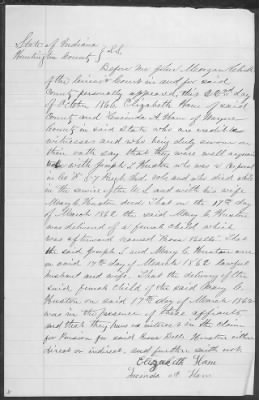 State of Indiana
Huntington County } SS.
Before me John Morgan Clerk
of the Circuit Court in and for said
County personally appeared, this 22nd day
of October 1866 Elizabeth Ham of said
County and Lucinda A Ham of Wayne
County in said State who are credible
witnesses and who being duly sworn on
their oath say that they were well acquain
ted with Joseph S Huston who was a
in Co Regt Ind. vols and who died while
in the service of the U.S and with his wife
Mary C Huston deed That on the 17th day
of March 1862 the said Mary C. Huston
was delivered of a female child which
was afterward named Rosa Belle. That
the said Joseph S. and Mary C. Huston were
on said 17th day of March 1862 lawful
husband and wife. That the delivery of the
said female child of the said Mary C.
Huston on said 17th day of March 1862
was in the presence of these affiants
and that they have no interest in the claim
for Pension for said Rosa Belle Huston either
direct or indirect. and further saith not
Elizabeth Ham
Lucinda A. Ham